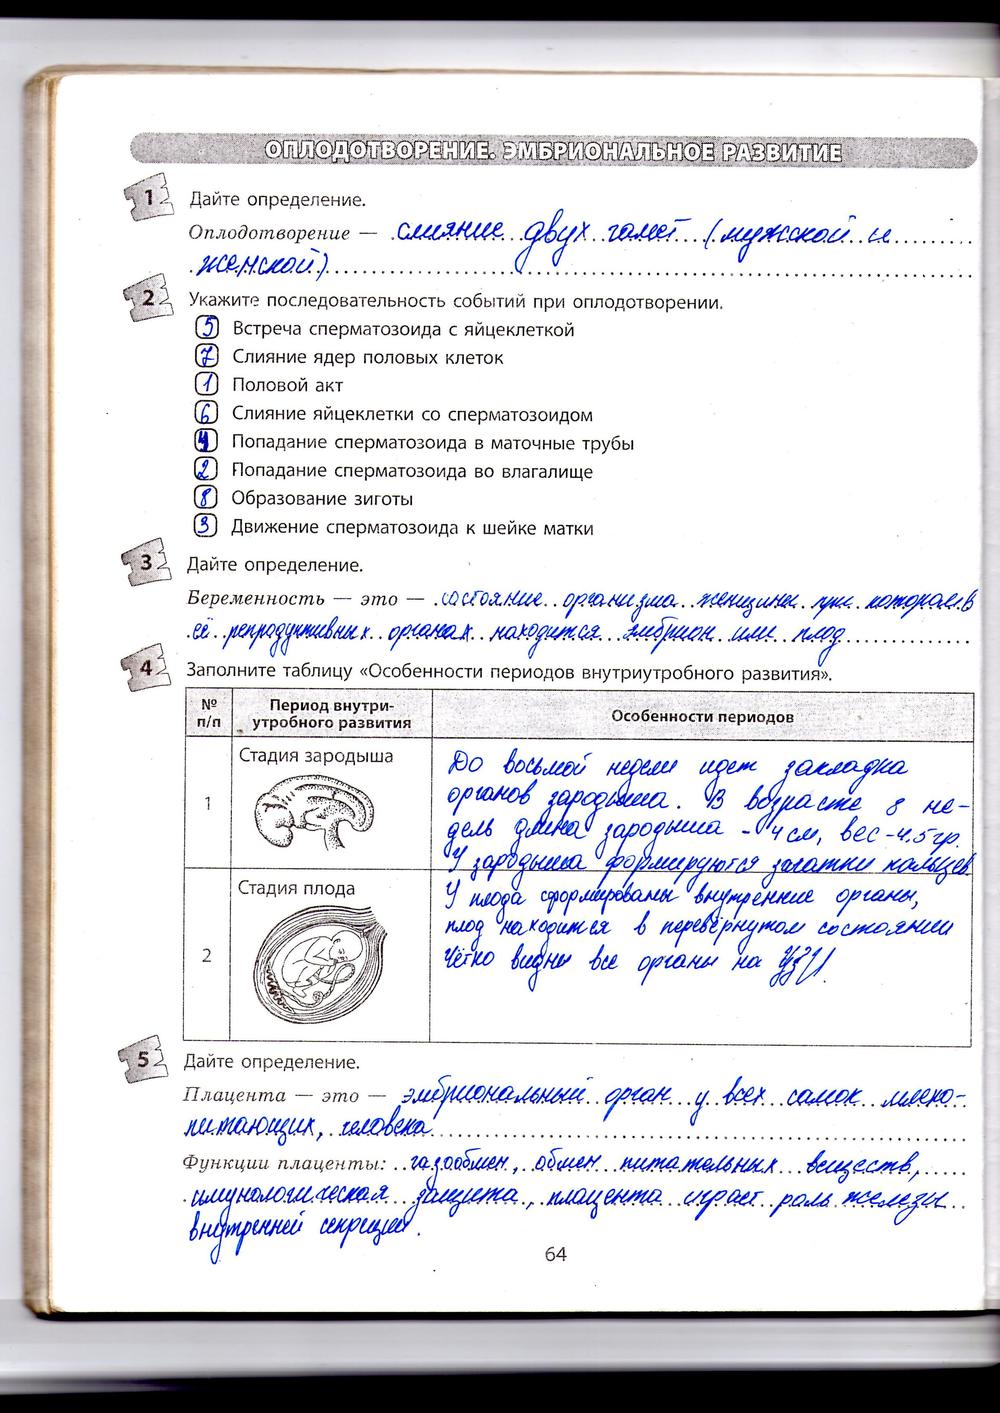 ОПЛОДОТВОРЕНИЕ. ЭМБРИОНАЛЬНОЕ РАЗВИТИЕ
1 Дайте определение.
Оплодотворение — слияние двух гамет (мужской и
женской)
2 Укажите последовательность событий при оплодотворении.
5 Встреча сперматозоида с яйцеклеткой
7 Слияние ядер половых клеток
1 Половой акт
6 Слияние яйцеклетки со сперматозоидом
4 Попадание сперматозоида в маточные трубы
2 Попадание сперматозоида во влагалище
8 Образование зиготы
3 Движение сперматозоида к шейке матки
3 Дайте определение.
Беременность — это — состояние организма женщины при котором в
её репродуктивных органах находится эмбрион или плод
4 Заполните таблицу «Особенности периодов внутриутробного развития».
№ п/п
Период внутри-
утробного развития
Особенности периодов
1
Стадия зародыша
До восьмой недели идет закладка
органов зародыша. В возрасте 8 не-
дель длина зародыша - 4 см, вес - 4,5 гр.
У зародыша формируются зачатки пальцев.
2
Стадия плода
У плода сформированы внутренние органы,
плод находится в перевёрнутом состоянии
Чётко видны все органы на УЗИ.
5 Дайте определение.
Плацента — это — эмбриональный орган у всех самок млеко-
питающих, человека
Функции плаценты: газообмен, обмен питательных веществ,
имунологическая защита, плацента играет роль железы
внутренней секреции.
64